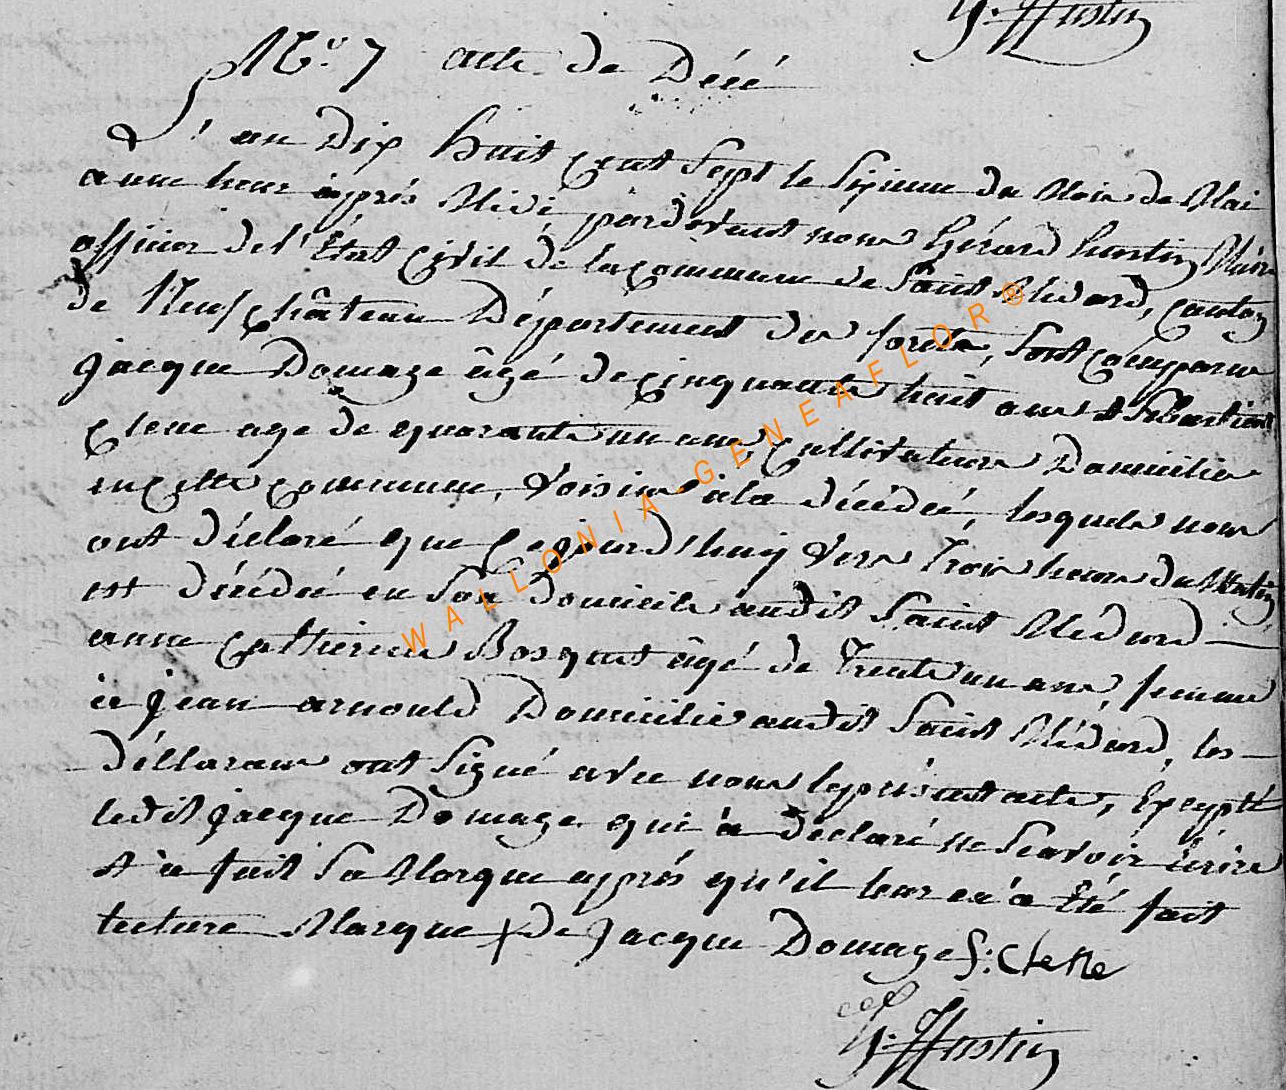 G: Hustin
N.º 7 acte de Décé
L'an Dix huit cent sept le sixieme du Mois de Mai
a une heure après Midi, pardevant nous Gérard hustin Maire
officier de l'État civil de la commune de Saint Médard, canton
de Neufchâteau Département des forêts, sont comparus
jacque Domage âgé de cinquante huit ans et Sebastient
age de quarante un ans, cultivateurs Domicilies
en cette commune, voisins à la décédée, lesquels nous
ont déclaré que cejourd'huij vers trois heures du Matin
est décédée en son domicile audit Saint Médard
anne catherine Bosquet âgé de trente un ans, femme
à jean arnould Domicilié audit Saint Médard, les
déllarans ont signé avec nous le présent acte, Excepté
ledit jacque Domage qui à déclaré ne scavoir écrire
et à fait sa Marque après qu'il leur en à Eté fait
lecture Marque + de jacque Domage S: Clesse
G: Hustin
WALLONIA-GENEAFLOR®